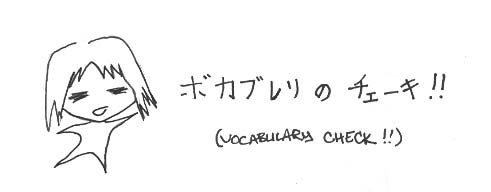 ボカブレリの チェーキ!!
(VOCABULARY CHECK!!)